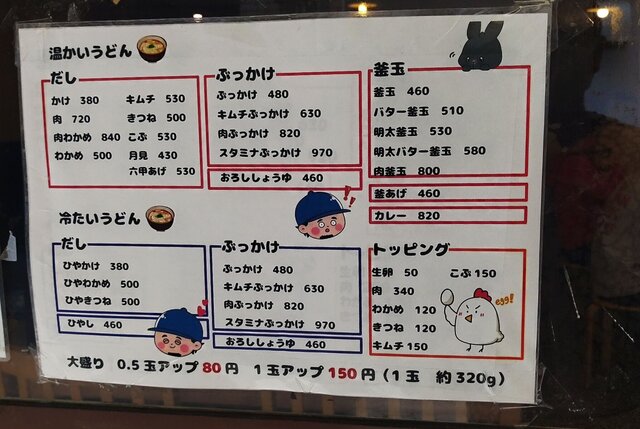 温かいうどん
だし
かけ 380
肉 720
肉わかめ 840
わかめ 500
キムチ 530
きつね 500
こぶ 530
月見 430
六甲あげ 530
ぶっかけ
ぶっかけ 480
キムチぶっかけ 630
肉ぶっかけ 820
スタミナぶっかけ 970
おろししょうゆ 460
釜玉
釜玉 460
バター釜玉 510
明太釜玉 530
明太バター釜玉 580
肉釜玉 800
釜あげ 460
カレー 820
冷たいうどん
だし
ひやかけ 380
ひやわかめ 500
ひやきつね 500
ひやし 460
ぶっかけ
ぶっかけ 480
キムチぶっかけ 630
肉ぶっかけ 820
スタミナぶっかけ 970
おろししょうゆ 460
トッピング
生卵 50
肉 340
わかめ 120
きつね 120
キムチ 150
こぶ 150
egg!
大盛り 0.5玉アップ80円 1玉アップ150円(1玉 約320g)